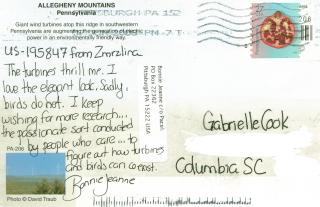 ALLEGHENY MOUNTAINS
Pennsylvania
Giant wind turbines atop this ridge in southwestern
Pennsylvania are augmenting the generation of electric
power in an environmentally friendly way.
PITTSBURGH PA 152
US-195847 from Zmrzlina
The turbines thrill me. I
love the elegant look. Sadly,
birds do not. I keep
wishing for more research...
the passionate sort conducted
by people who care... to
figure out how turbines
and birds can co exist.
Bonnie Jeanne
PA-206
Photo © David Traub
Bonnie Jeanne c/o PacaH
PO Box 22342
Pittsburgh PA 15222 USA
Gabrielle Cook
Columbia SC